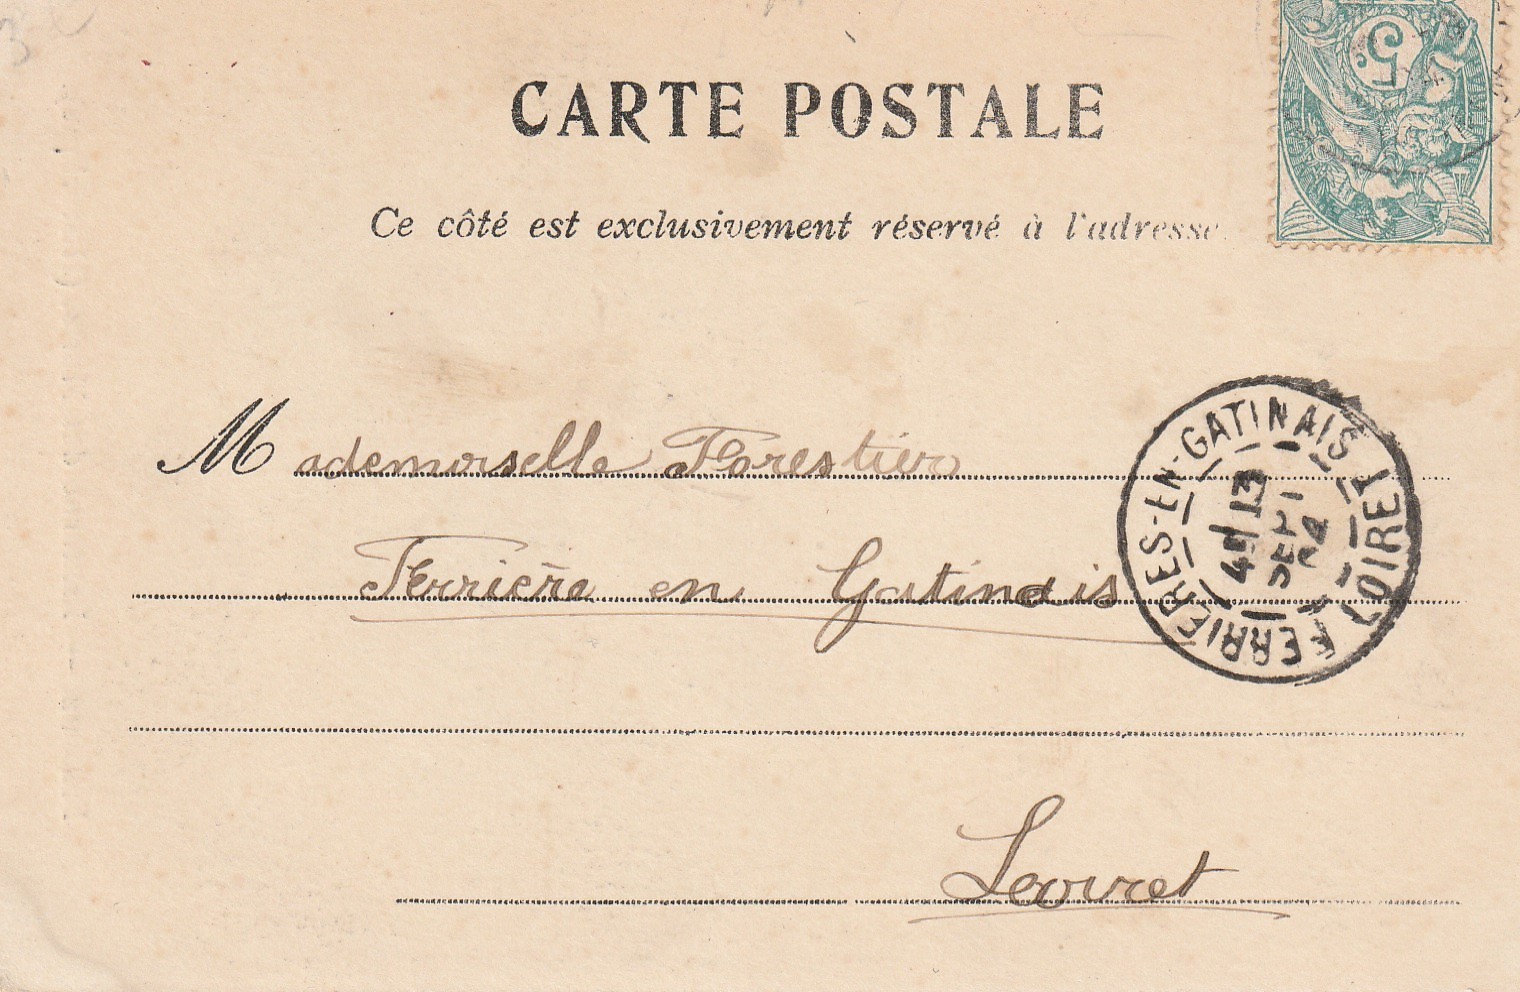 CARTE POSTALE
5
Ce côté est exclusivement réservé à l'adresse.
Mademoiselle Forestier
Ferrière en Gatinais
Leoiret
FERRIERES-EN-GATINAIS LOIRET
4E 13
SEPT
04